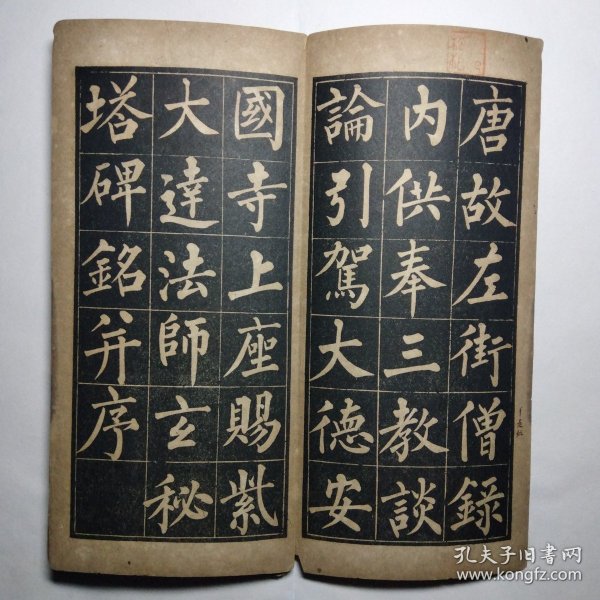 唐故左街僧錄
內供奉三教談
論引駕大德安
國寺上座賜紫
大達法師玄秘
塔碑銘并序
孔夫子旧书网
www.kongfz.com